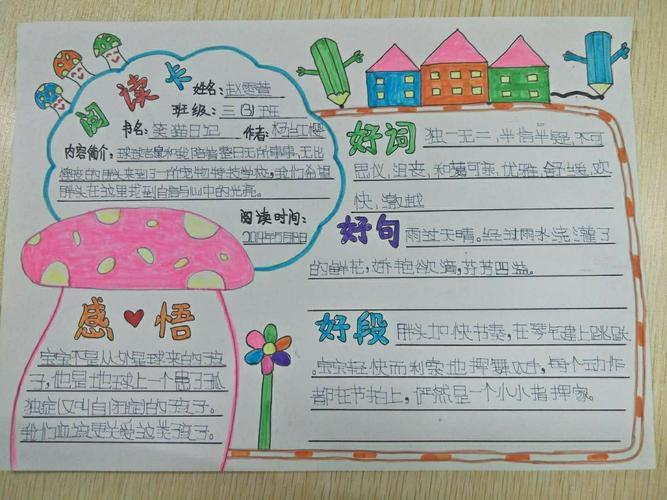 阅读卡
姓名:赵雪萱
班级:三(3)班
书名:笑猫日记 作者:杨红樱
内容简介:球球老鼠和我陪着整日无所事事,无比
胖头来到了一个宠物特技学校,我们希望
胖头在这里找到自信与心中的光亮。
阅读时间:
2019年5月18日
好词 独一无二,半信半疑,不可
思仪,沮丧,和蔼可亲,优雅,舒缓,欢
快,激越
好句 雨过天晴。经过雨水浇灌了
的鲜花,娇艳欲滴,芬芳四溢。
感悟
宝宝不是从外星球来的孩
子,他是地球上一个患了孤
独症(又叫自闭症)的孩子。
我们应该更关爱这类孩子。
好段 胖头加快节奏,在琴键上跳跃
,宝宝轻快而利索地挥舞双
,每个动作
都在节拍上,俨然是一个小小指挥家。